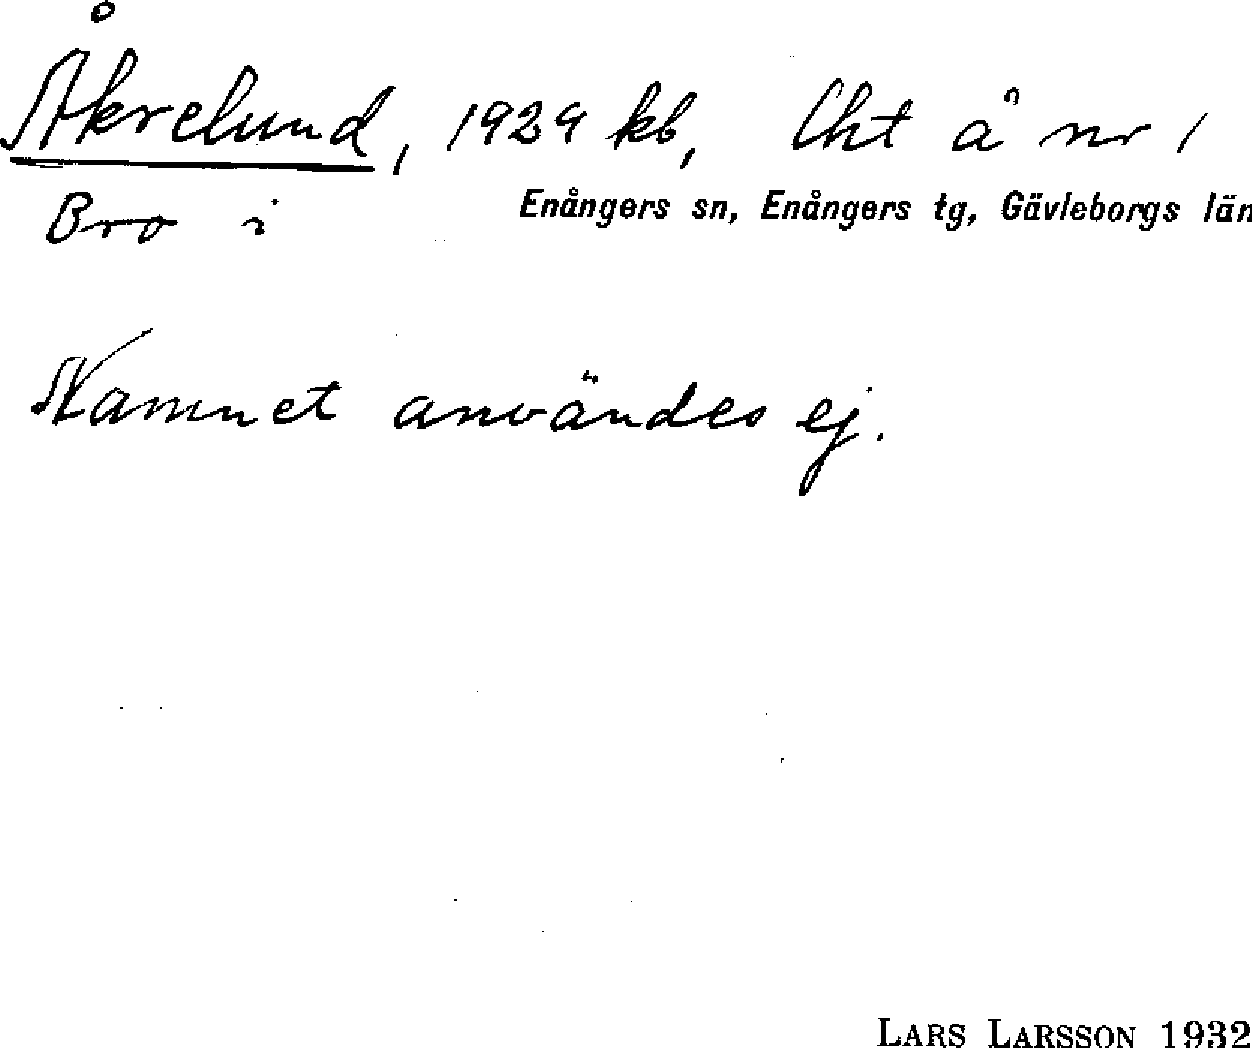 Åkrelund, 1929 kb, lht å nr 1
Bro i Enångers sn, Enångers tg, Gävleborgs län
Namnet användes ej.
LARS LARSSON 1932